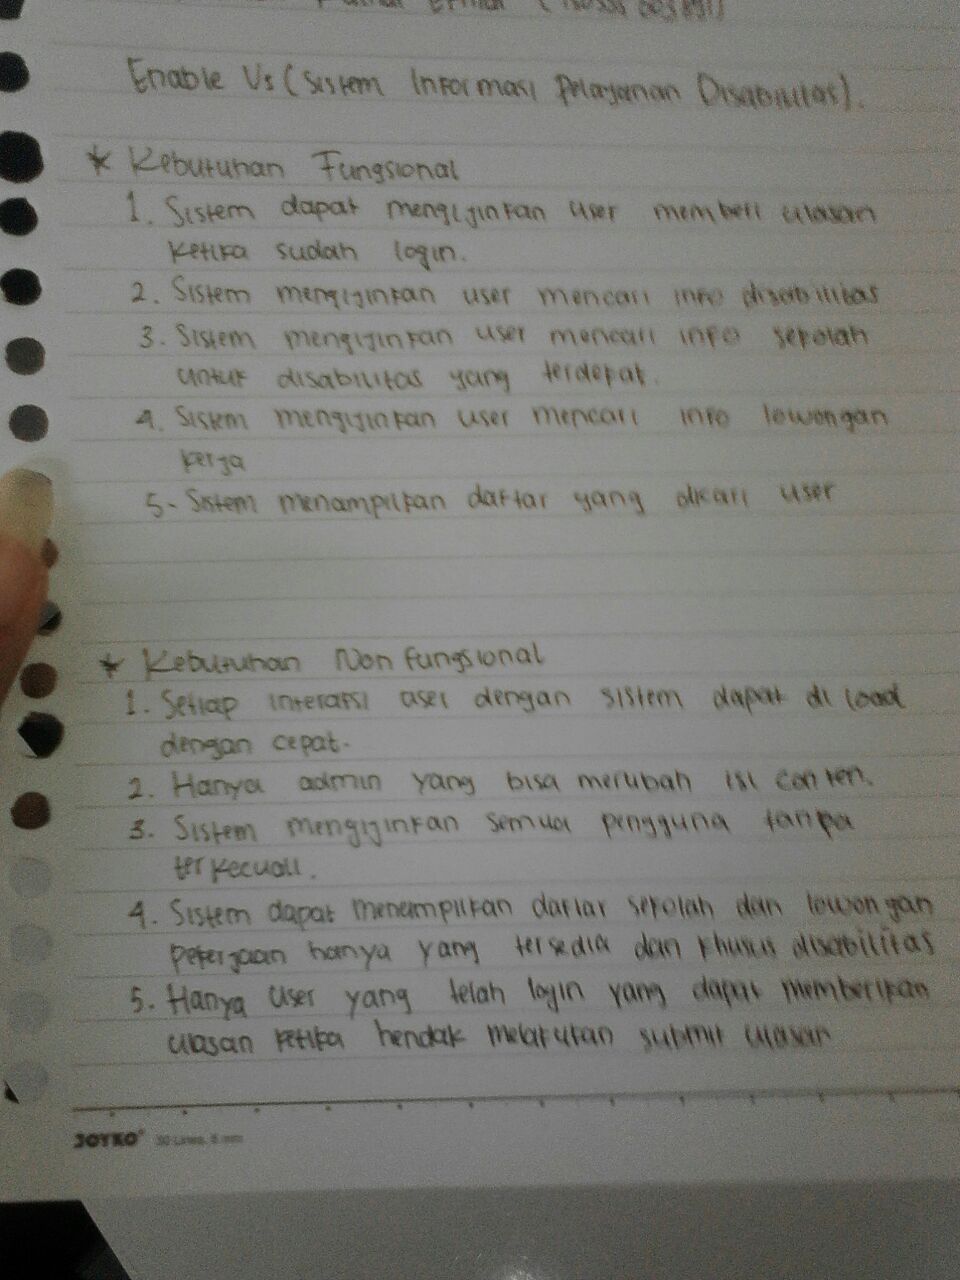 Enable Us (Sistem Informasi Pelayanan Disabilitas).
* Kebutuhan Fungsional
1. Sistem dapat mengijinkan user memberi ulasan
ketika sudah login.
2. Sistem mengijinkan user mencari info disabilitas
3. Sistem mengijinkan user mencari info sekolah
untuk disabilitas yang terdekat.
4. Sistem mengijinkan user mencari info lowongan
kerja
5. Sistem menampilkan daftar yang dicari user
* Kebutuhan Non Fungsional
1. Setiap interaksi user dengan sistem dapat di load
dengan cepat.
2. Hanya admin yang bisa merubah isi conten.
3. Sistem mengijinkan semua pengguna tanpa
terkecuali.
4. Sistem dapat menampilkan daftar sekolah dan lowongan
pekerjaan hanya yang tersedia dan khusus disabilitas
5. Hanya user yang telah login yang dapat memberikan
ulasan ketika hendak melakukan submit ulasan
JOYKO 30 Lines, 8 mm